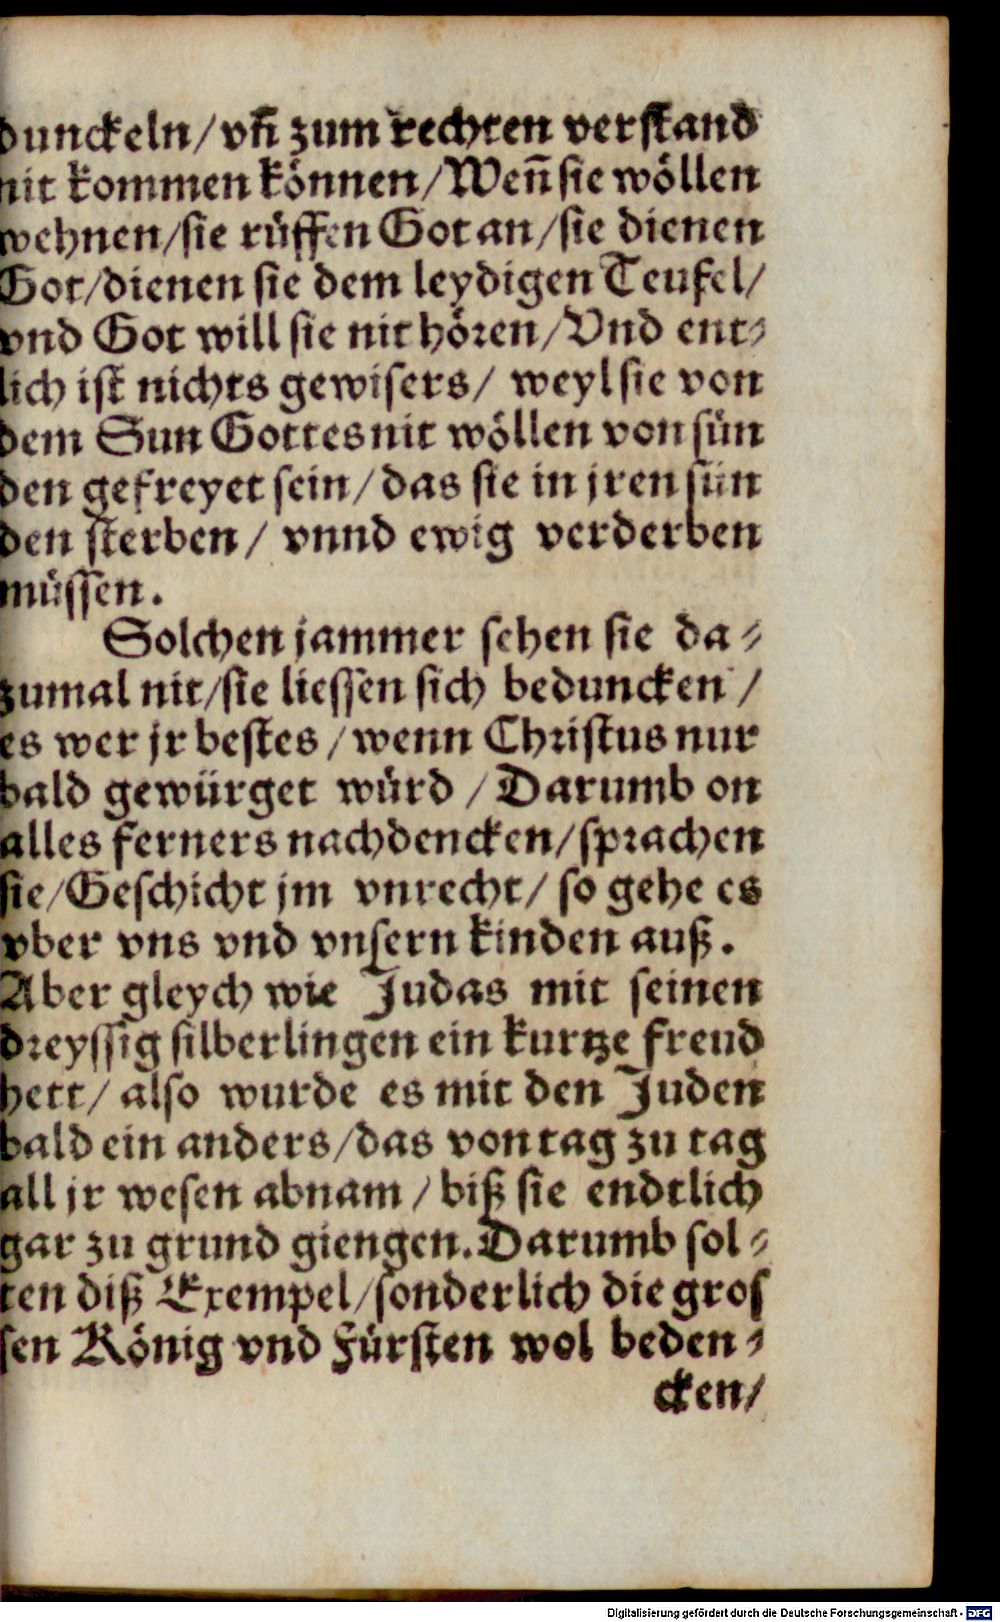 dunckeln/ vñ zum rechten verstand
nit kommen können/ Weñ sie wöllen
wehnen/ sie rüffen Got an/ sie dienen
Got/ dienen sie dem leydigen Teufel/
vnd Got will sie nit hören/ Vnd ent⸗
lich ist nichts gewisers/ weyl sie von
dem Sun Gottes nit wöllen von sün
den gefreyet sein/ das sie in jren sün
den sterben/ vnnd ewig verderben
müssen.
Solchen jammer sehen sie da⸗
zumal nit/ sie liessen sich beduncken/
es wer jr bestes/ wenn Christus nur
bald gewürget würd/ Darumb on
alles ferners nachdencken/ sprachen
sie/ Geschicht jm vnrecht/ so gehe es
vber vns vnd vnsern kinden auß.
Aber gleych wie Judas mit seinen
dreyssig silberlingen ein kurtze freud
hett/ also wurde es mit den Juden
bald ein anders/ das von tag zu tag
all jr wesen abnam/ biß sie endtlich
gar zu grund giengen. Darumb sol⸗
ten diß Exempel/ sonderlich die gros
sen König vnd Fürsten wol beden⸗
cken/
Digitalisierung gefördert durch die Deutsche Forschungsgemeinschaft - DFG